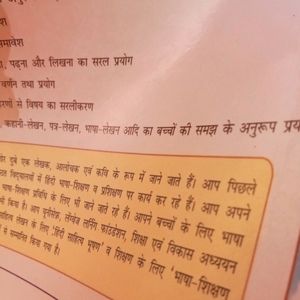 समावेश
, पढ़ना और लिखना का सरल प्रयोग
वर्णन तथा प्रयोग
से विषय का सरलीकरण
, कहानी-लेखन, पत्र-लेखन, भाषा-लेखन आदि का बच्चों की समझ के अनुरूप
दुबे एक लेखक, आलोचक एवं कवि के रूप में जाने जाते हैं। आप पिछले
विद्यालयों में हिंदी भाषा-शिक्षण व प्रशिक्षण पर कार्य कर रहे हैं। आप अपने
भाषा-शिक्षण प्रविधि के लिए भी जाने जाते रहे हैं। आपने बच्चों के लिए भाषा
की किया है। आप लैंग्वेज लर्निंग फ़ाउंडेशन, शिक्षा एवं विकास अध्ययन
साहित्य लेखन के लिए 'हिंदी साहित्य भूषण' व शिक्षण के लिए 'भाषा-शिक्षण
से सम्मानित किया गया है।